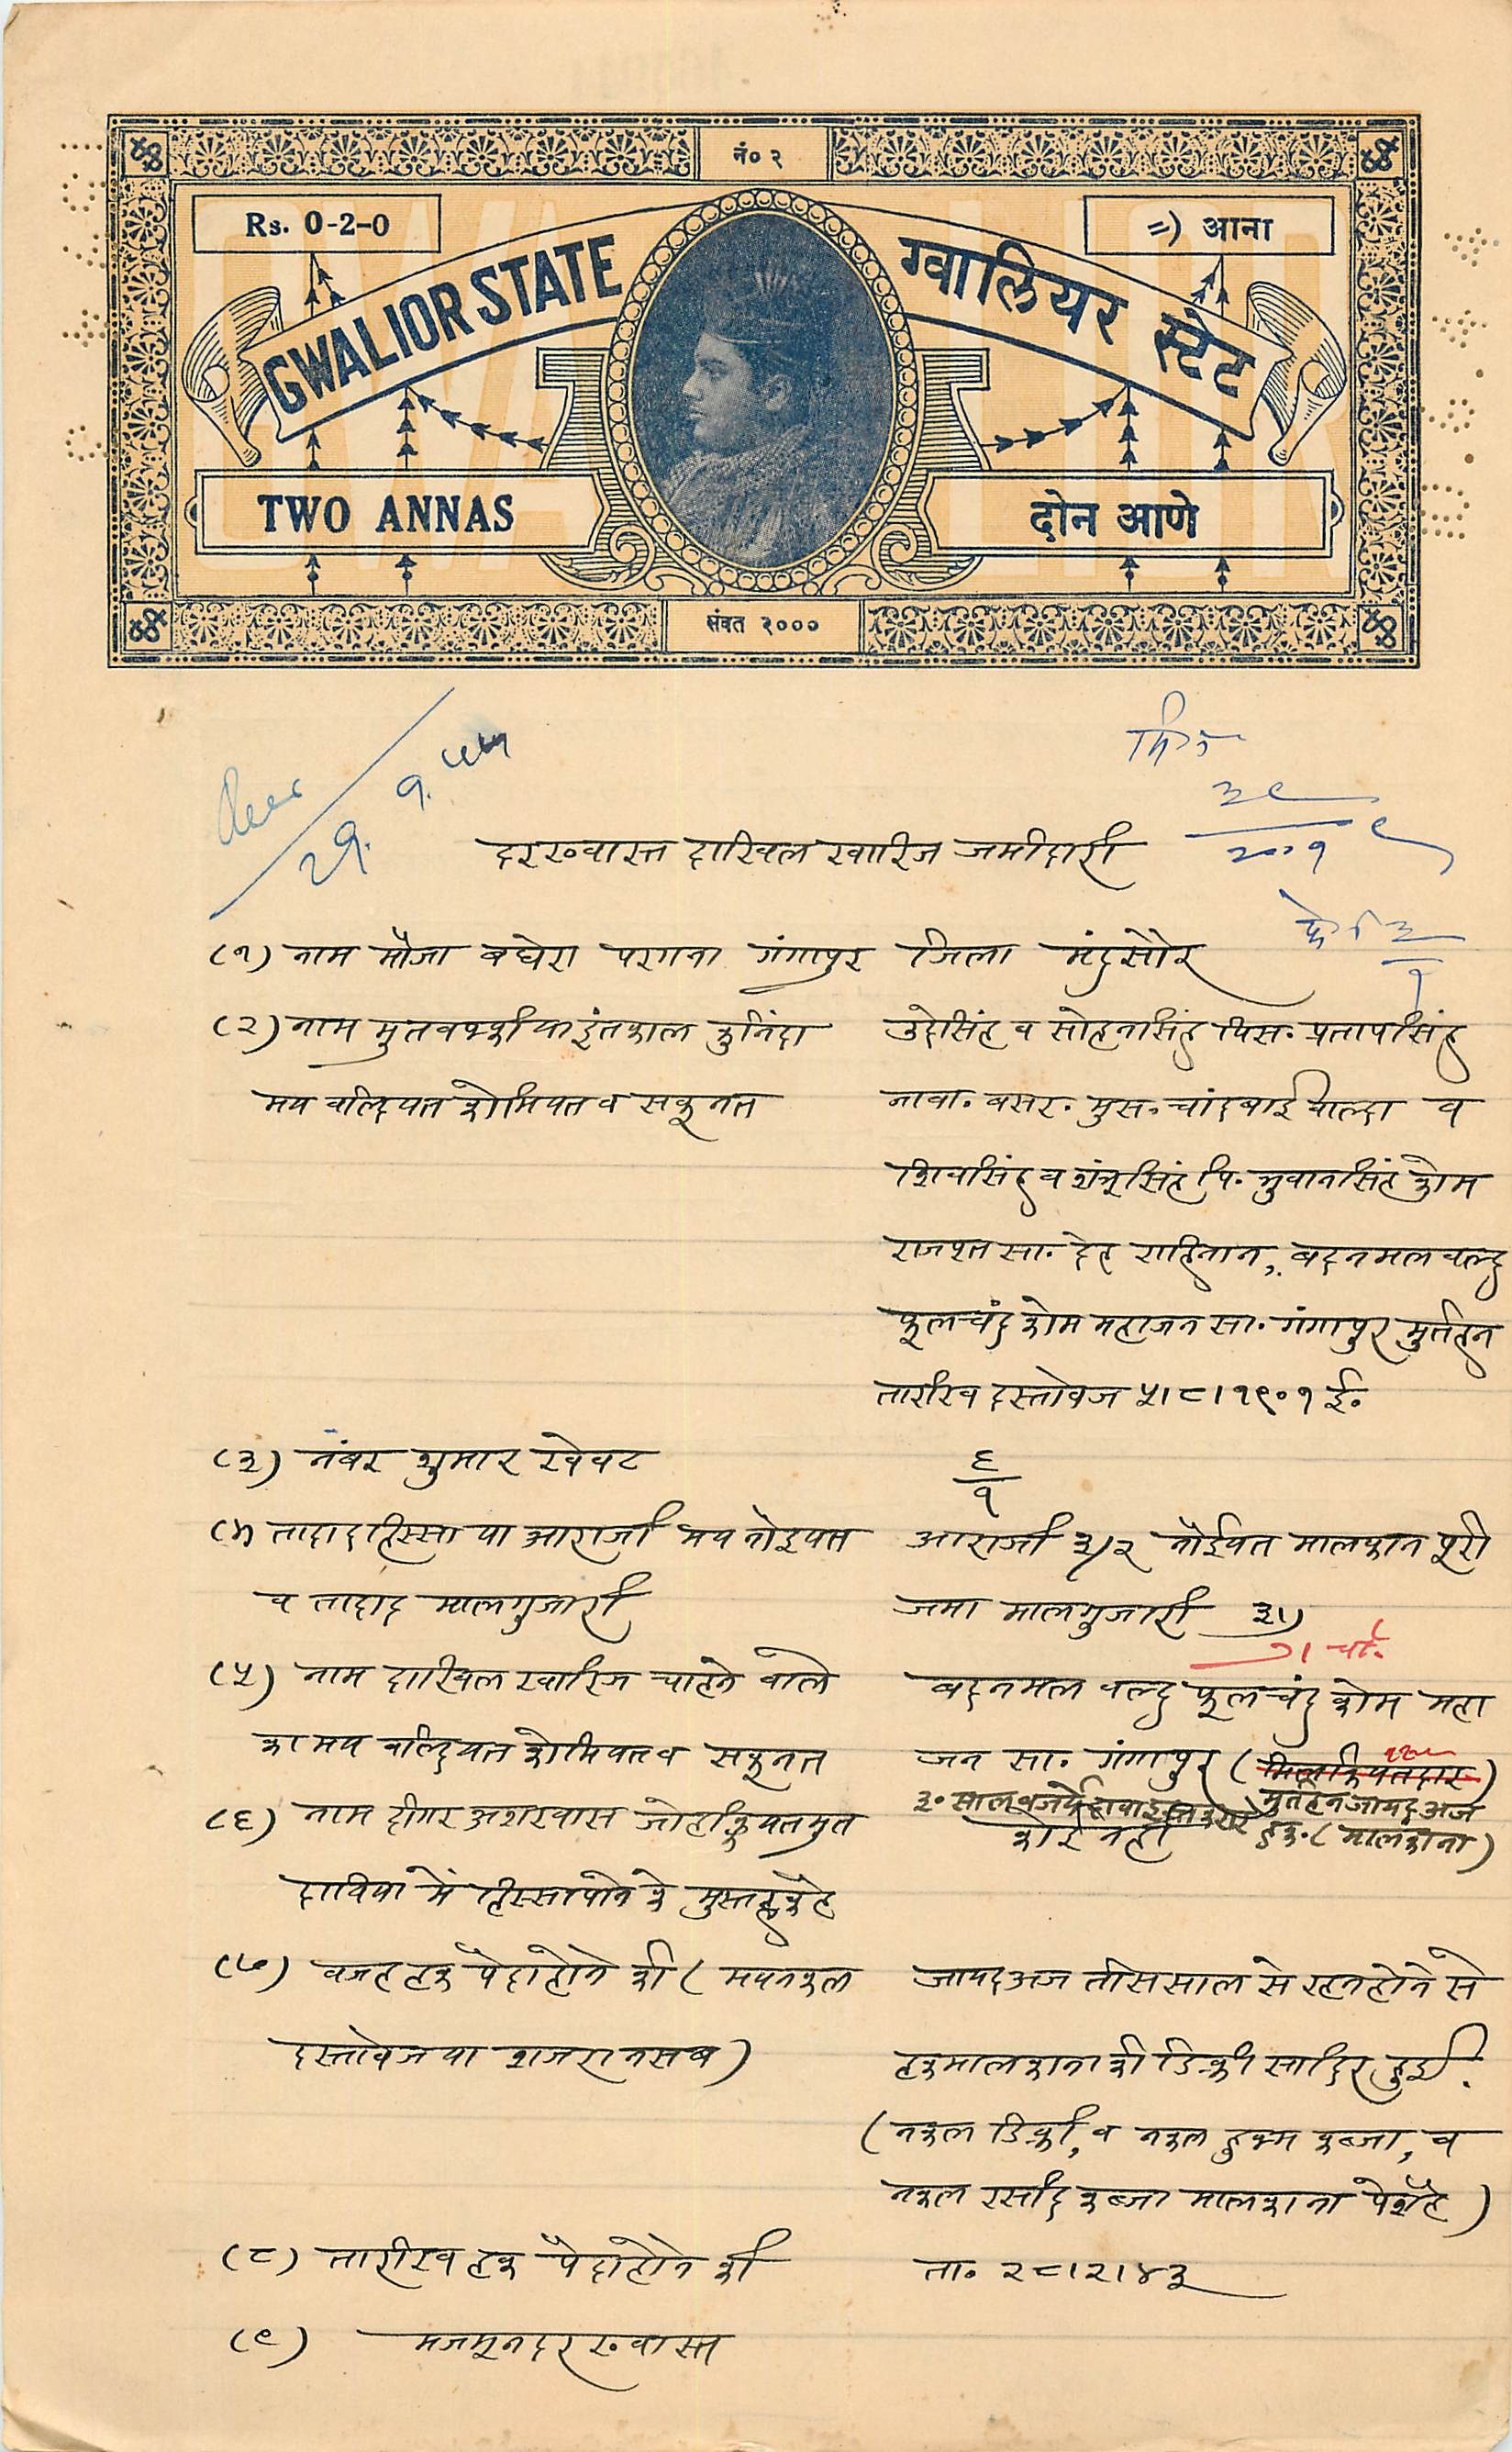 नं० २
Rs. 0-2-0
=) आना
GWALIOR STATE
ग्वालियर स्टेट
TWO ANNAS
दोन आणे
संवत २०००
२००१
दरख्वास्त दाखिल खारिज जमीदारी
(१) नाम मौजा बघेरा परगना गंगापुर जिला मंदसौर
(२) नाम मुतवफ्फी या इंतकाल कुनिंदा
मय वल्दियत कोमियत व सकूनत
उदेसिंह व सोहनसिंह पिस. प्रतापसिंह
नावा. बसर. मुस. चांदबाई वाल्दा व
शिवसिंह व शंभूसिंह पि. भुवानसिंह कोम
राजपूत सा. देह राहिनान, बदनमल वल्द
फूलचंद कोम महाजन सा. गंगापुर मुर्तहन
तारीख दस्तावेज ५।८।१९०१ ई.
(३) नंबर शुमार खेवट
६/१
(४) तादाद हिस्सा या आराजी मय नोइयत
व तादाद मालगुजारी
आराजी ३)२ नौईयत मालकान पूरी
जमा मालगुजारी ३।)
(५) नाम दाखिल खारिज चाहने वाले
का मय वल्दियत कोमियत व सकूनत
बदनमल वल्द फूलचंद कोम महा
जन सा. गंगापुर (
मुर्तहन जायद अज
३० साल बजर्ये
हक. (मालकाना)
(६) नाम दीगर अशखास जो हकियत मुत
दाविया में हिस्सा पाने के मुस्तहक है
कोई नही
(७) वजह हक पैदा होने की (मय नकल
दस्तावेज या शजरा नसब)
जायद अज तीस साल से रहन होने से
हक मालकाना की डिक्री सादिर हुई.
(नकल डिक्री, व नकल हुक्म कब्जा, व
नकल रसीद कब्जा मालकाना पेश है)
(८) तारीख हक पैदा होने की
ता. २८।२।४३
(९) मजमून दरख्वास्त